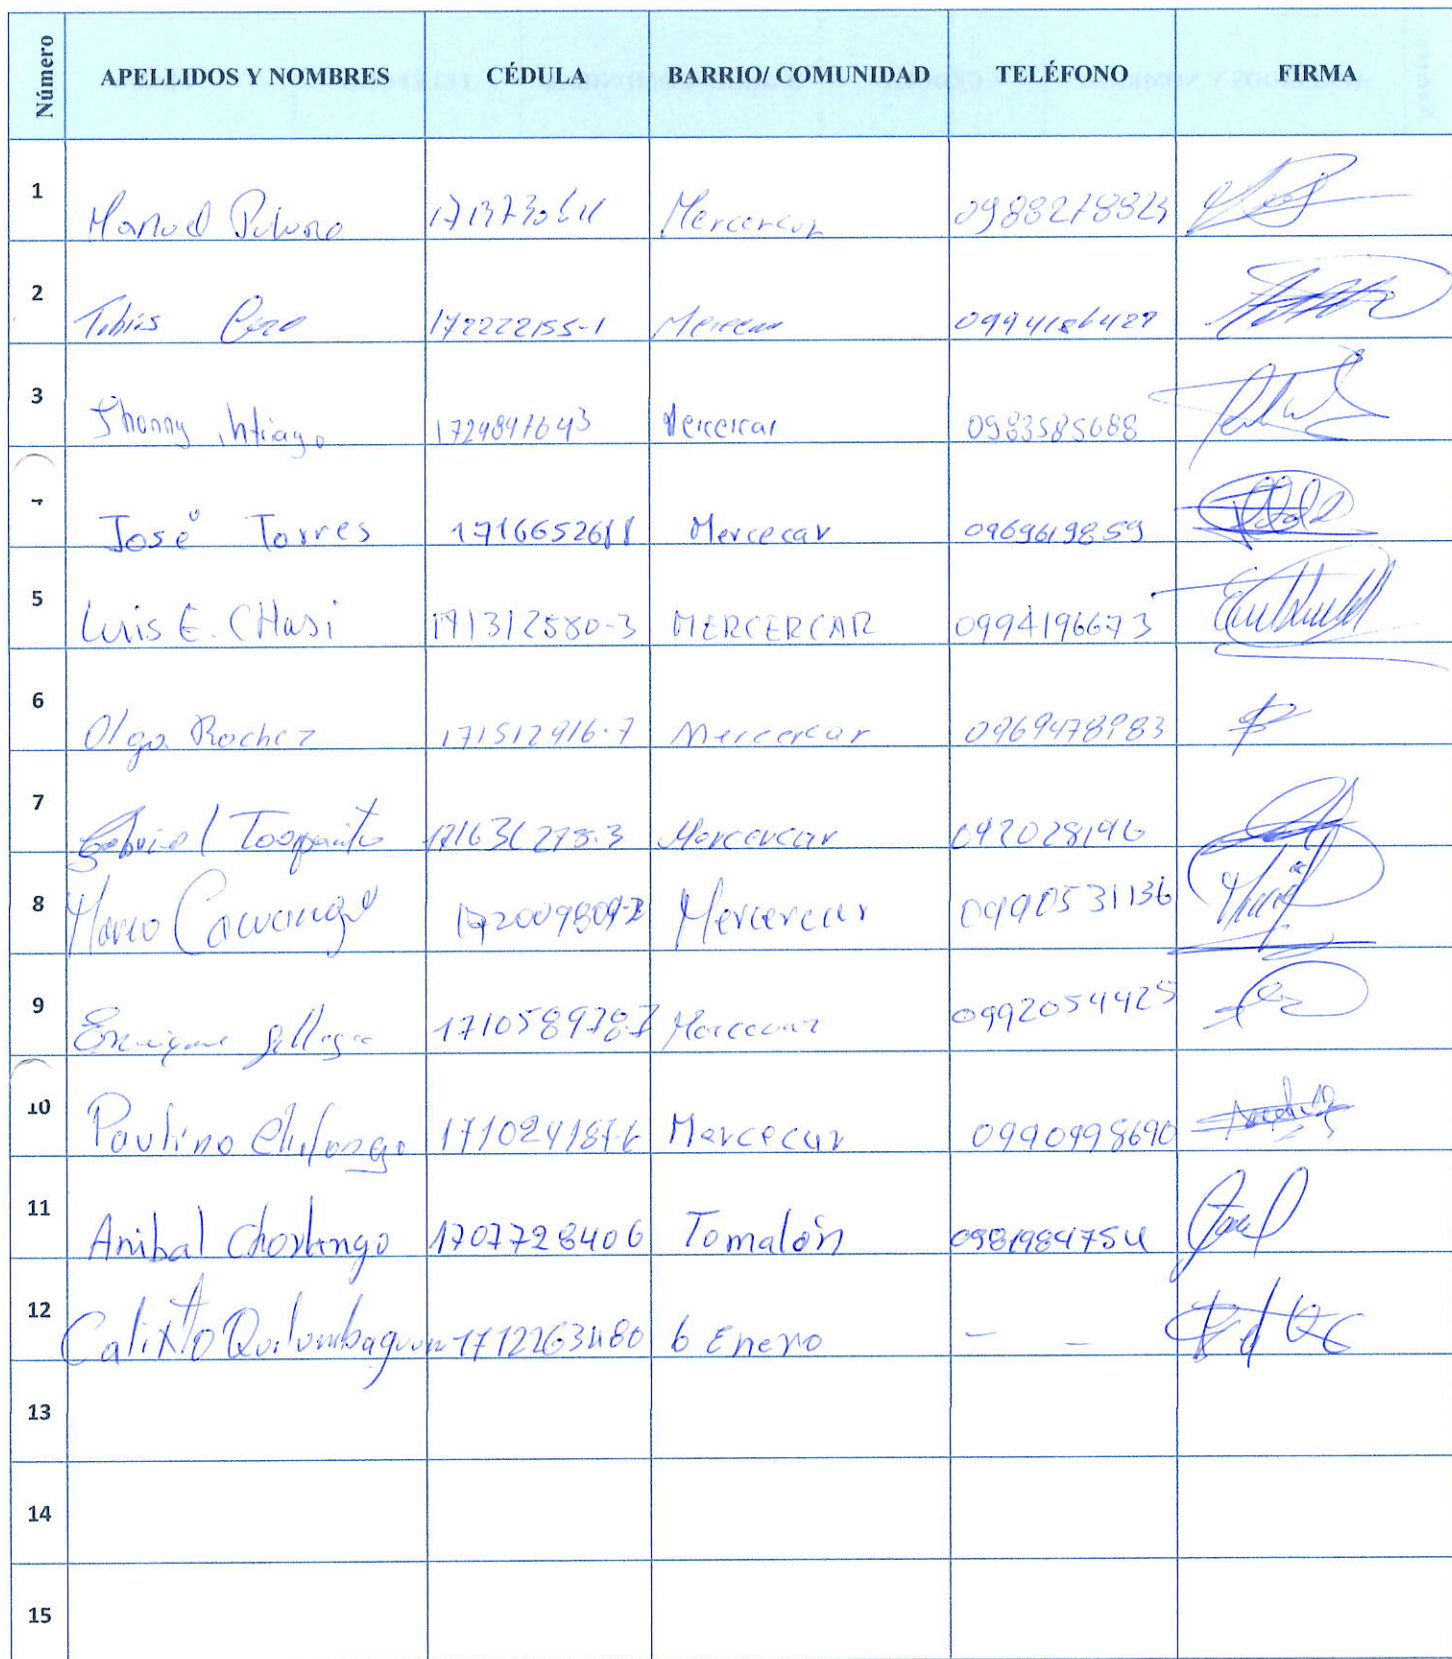 Número APELLIDOS Y NOMBRES CÉDULA BARRIO/ COMUNIDAD TELÉFONO FIRMA
1 Manuel Mercercar 0988278823
2 Tobias 172222155-1 0994186427
3 Jhonny 1724897643 Mercercar 0983585688
4 José Torres 1716652611 Mercecar 0969619859
5 Luis E. CHasi 171312580-3 MERCERCAR 0994196673
6 Olga Rochez 171512916-7 Mercercar 0969478983
7 Gabriel Toapanta 171631278-3 Mercercar 092028196
8 172009809-2 Mercercar 0990531136
9 Enrique 171058978-7 0992054425
10 Paulino 1710241876 Mercecar 0990998690
11 Anibal Chorlango 1707728406 Tomalón 0981984754
12 Calixto Quilumbaquin 1712263480 6 Enero - -
13
14
15